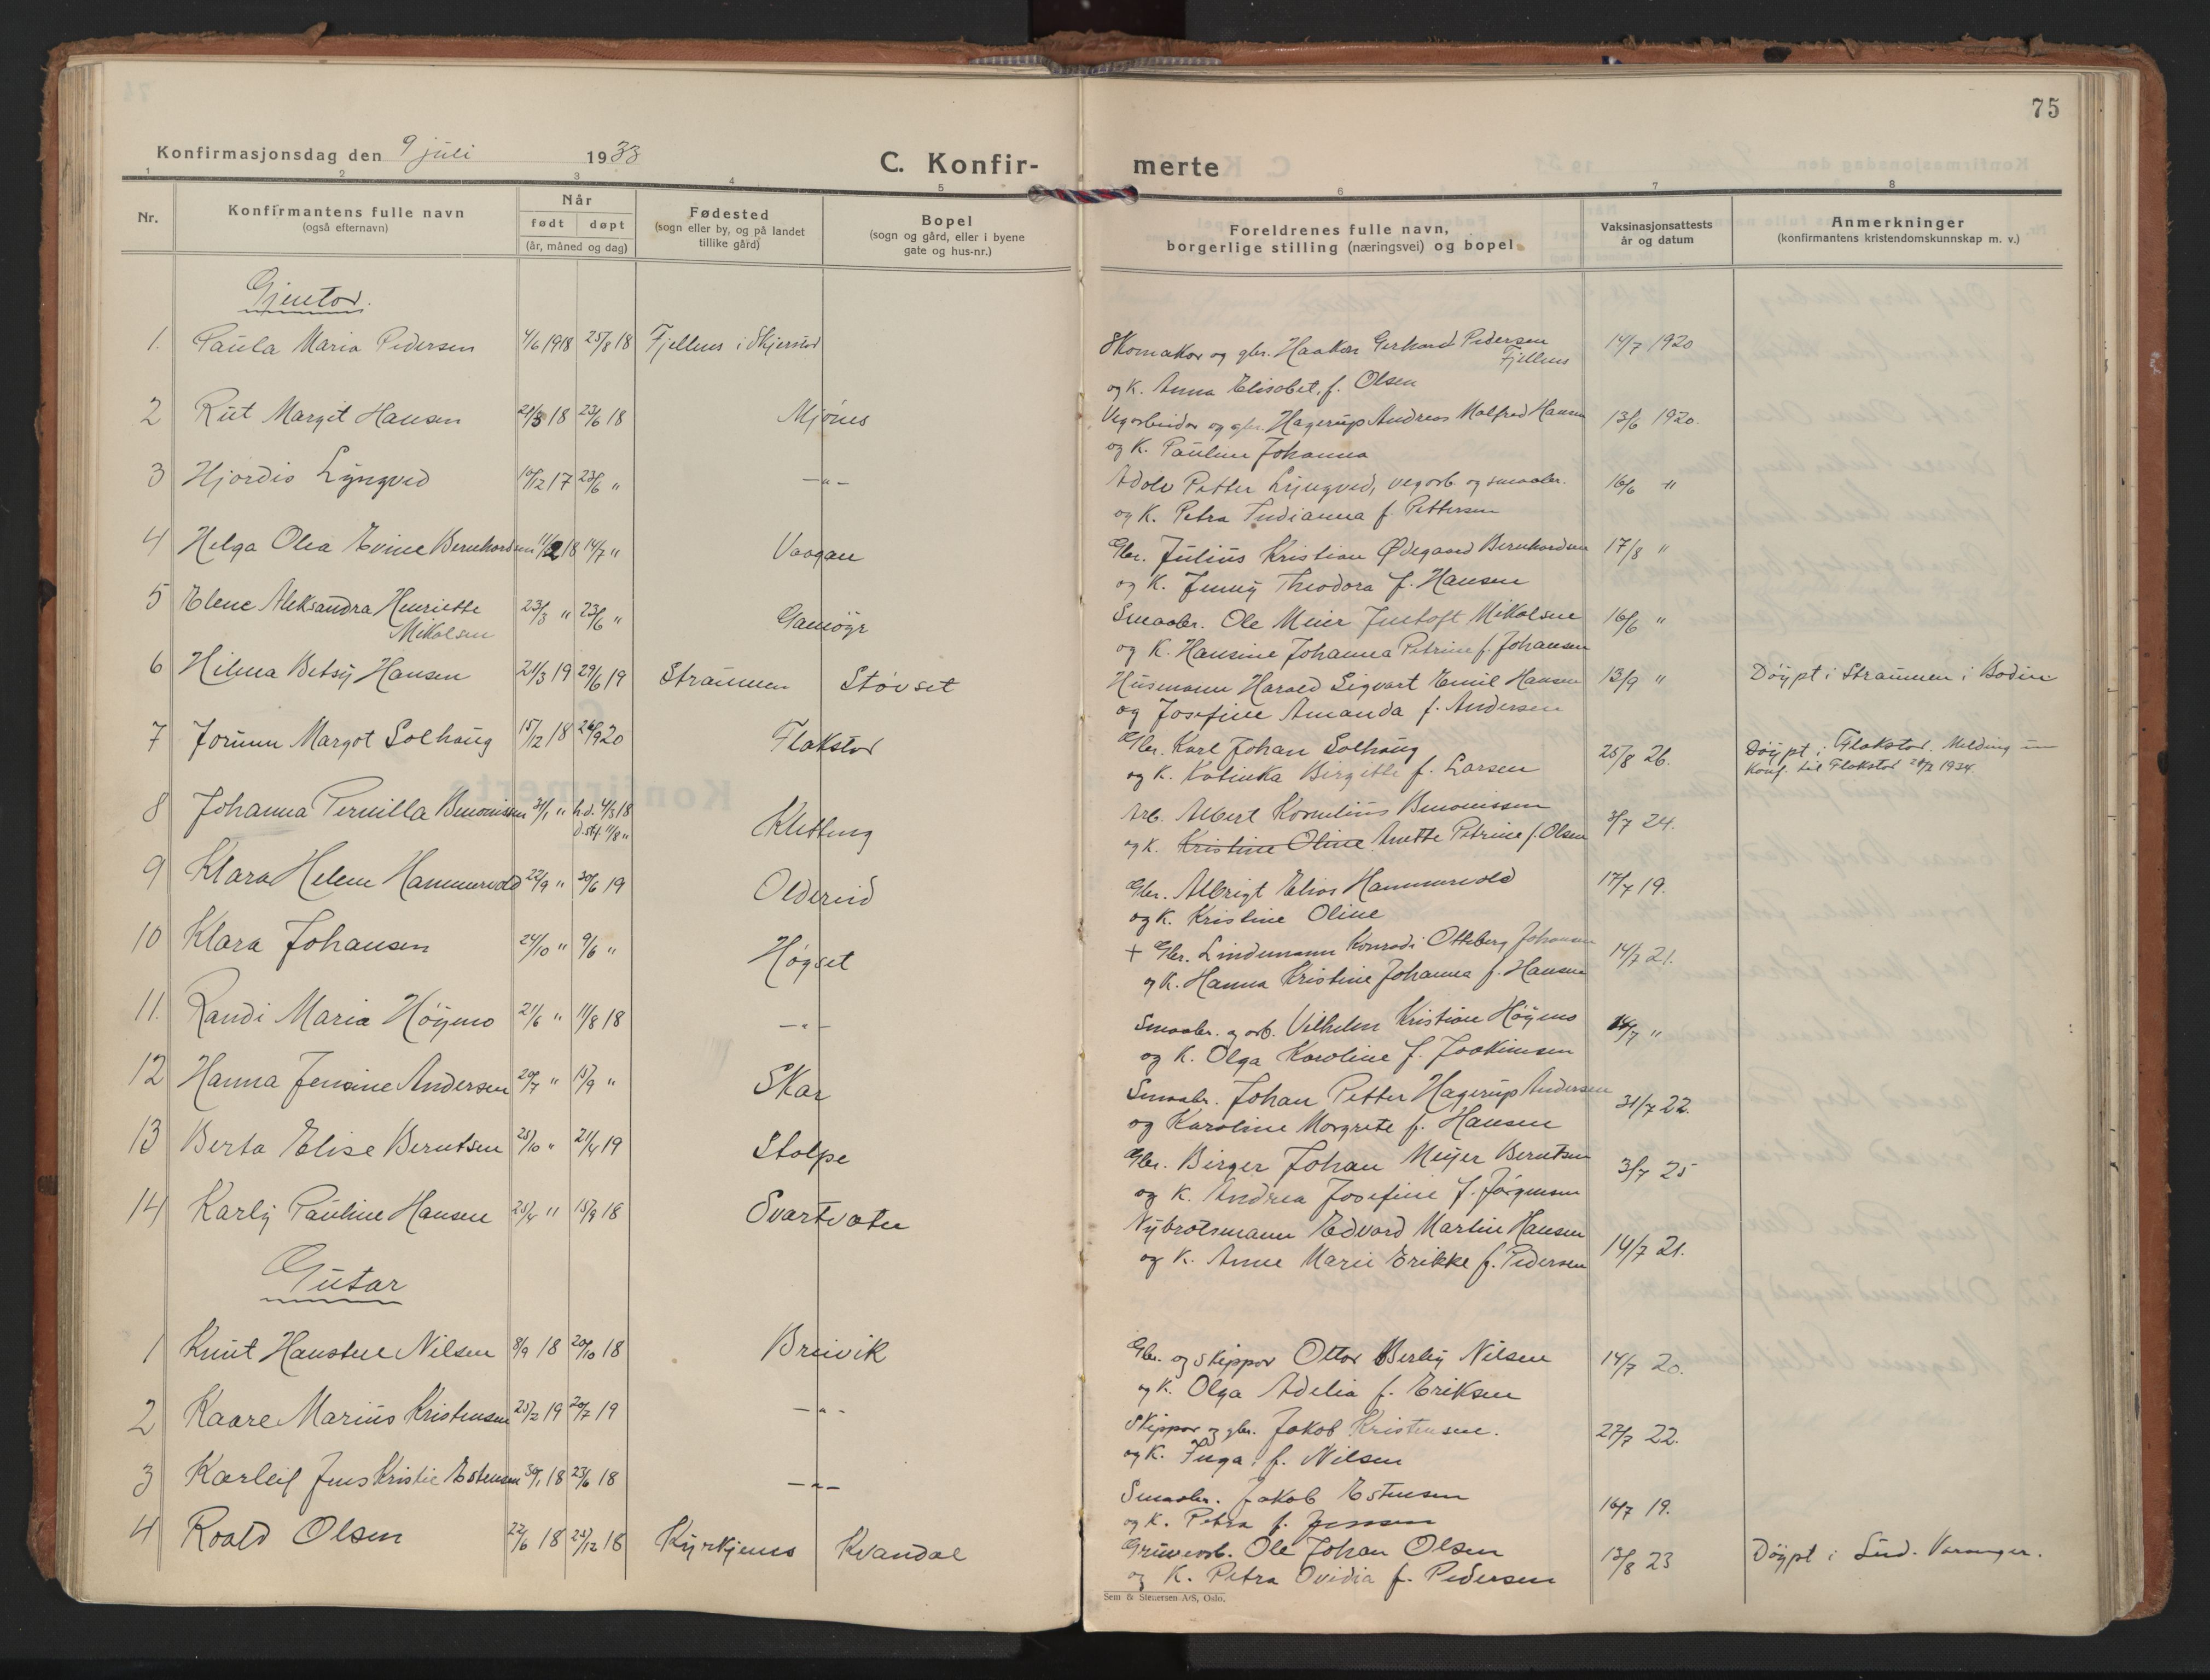 75
Konfirmasjonsdag den 9 juli 1933
C. Konfir-
merte
1 2 3 4 5 6 7 8
Nr.
Konfirmantens fulle navn
(også efternavn)
Når
født døpt
(år, måned og dag)
Fødested
(sogn eller by, og på landet
tillike gård)
Bopel
(sogn og gård, eller i byene
gate og hus-nr.)
Foreldrenes fulle navn,
borgerlige stilling (næringsvei) og bopel
Vaksinasjonsattests
år og datum
Anmerkninger
(konfirmantens kristendomskunnskap m. v.)
Gjentor.
1. Paula Maria Pedersen 4/6 1918 25/8 18 Fjellnes i Skjerstad Skomakar og gbr. Haakon Gerhard Pedersen 14/7 1920
Fjellnes
og K. Anna Elisabet, f. Olsen
2 Rut Margit Hansen 21/3 18 23/6 18 Mjönes Vegarbeidar og gbr. Hagerup Andreas Malfred Hansen 13/6 1920.
og K. Pauline Johanna
3 Hjordis Lyngved 10/12 17 23/6 " —"— Adolv Petter Lyngved, vegarb og smaabr. 16/6 "
og K. Petra Indianna f. Pettersen
4 Helga Olea Evine Bernhardsen 11/2 18 14/7 " Vaagan Gbr. Julius Kristian Ødegaard Bernhardsen 17/8 "
og K. Jenny Theodora f. Hansen
5 Elene Aleksandra Henriette 23/3 " 23/6 " Gamöyr Smaabr. Ole Meier Justoft Mikalsen 16/6 "
Mikalsen
og K. Hansine Johanna Petrine f. Johansen
6 Hilma Betsy Hansen 21/3 19 29/6 19 Straumen Stövset Husmann Harald Sigvart Emil Hansen 13/9 " Döypt i Straumen i Bodin
og Josefine Amanda f. Andersen
7 Jorunn Margot Solhaug 15/12 18 26/9 20 Flakstad Gbr. Karl Johan Solhaug 25/8 26. Döypt i Flakstad. Melding um
og K. Katinka Birgitte f. Larsen Konf. til Flakstad 1934.
8 Johanna Pernilla Benonissen 31/1 " h.d. 4/3 18 Kletting Arb. Albert Kornelius Benonissen 3/7 24.
d. stf. 11/8 "
og K. Kristine Oline Anette Petrine f. Olsen
9 Klara Helene Hammervold 22/9 " 30/6 19 Oldereid Gbr. Albrigt Elias Hammervold 17/7 19.
og K. Kristine Oline
10 Klara Johansen 24/10 " 9/6 " Høgset + Gbr. Lindemann Konradi Otteberg Johansen 14/7 21.
og K. Hanna Kristine Johanna f. Hansen
11. Randi Maria Höymo 21/6 " 11/8 18 —"— Smaabr. og arb. Vilhelm Kristian Höymo 14/7 "
og K. Olga Karoline f. Joakimsen
12 Hanna Jensine Andersen 20/7 " 15/9 " Skar Smaabr. Johan Petter Hagerup Andersen 31/7 22.
og Karoline Margrete f. Hansen
13 Berta Elise Berntsen 25/10 " 21/4 19 Stolpe Gbr. Birger Johan Meyer Berntsen 3/7 25
og K. Andrea Josefine f. Jörgensen
14 Karly Pauline Hansen 25/4 " 15/9 18 Svartvatn Nybrotsmann Edvard Martin Hansen 14/7 21.
og K. Anne Marie Erikke f. Pedersen
Gutar
1 Knut Haustue Nilsen 8/9 18 20/10 18 Breivik Gbr. og skippar Ottar Berby Nilsen 14/7 20.
og K. Olga Adelia f. Eriksen
2 Kaare Marius Kristensen 25/2 19 20/7 19 —"— Skippar og gbr. Jakob Kristensen. 27/7 22.
og K. Inga f. Nilsen
3 Karleif Jens Kristie Estensen 30/1 18 23/6 18 —"— Smaabr. Jakob Estensen 16/7 19.
og K. Petra f. Jensen
4 Roald Olsen 22/6 18 25/12 18 Kyrkjenes Kvandal Gruvearb. Ole Johan Olsen 13/8 23 Döypt i Sud. Varanger.
og K. Petra Ovidia f. Pedersen
Sem & Stenersen A/S, Oslo.